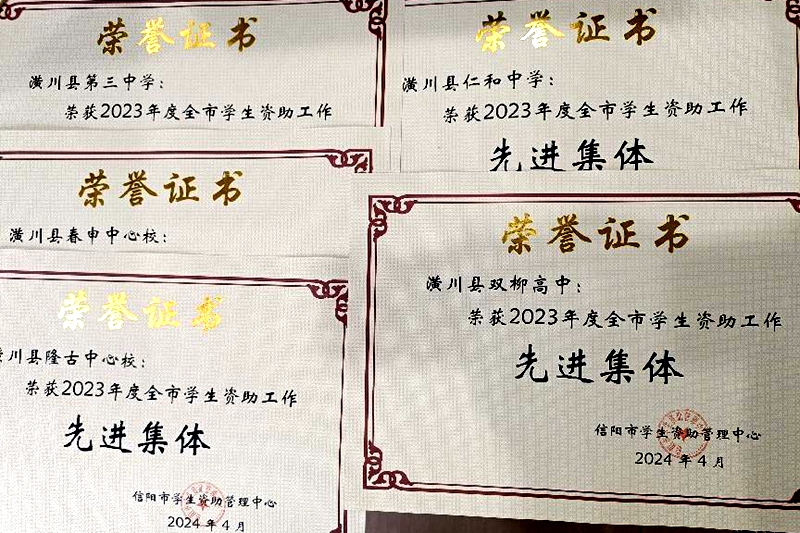 荣誉证书
潢川县第三中学：
荣获2023年度全市学生资助工作
荣誉证书
潢川县仁和中学：
荣获2023年度全市学生资助工作
先进集体
荣誉证书
潢川县春申中心校：
荣誉证书
潢川县隆古中心校：
荣获2023年度全市学生资助工作
先进集体
信阳市学生资助管理中心
2024年4月
荣誉证书
潢川县双柳高中：
荣获2023年度全市学生资助工作
先进集体
信阳市学生资助管理中心
2024年4月